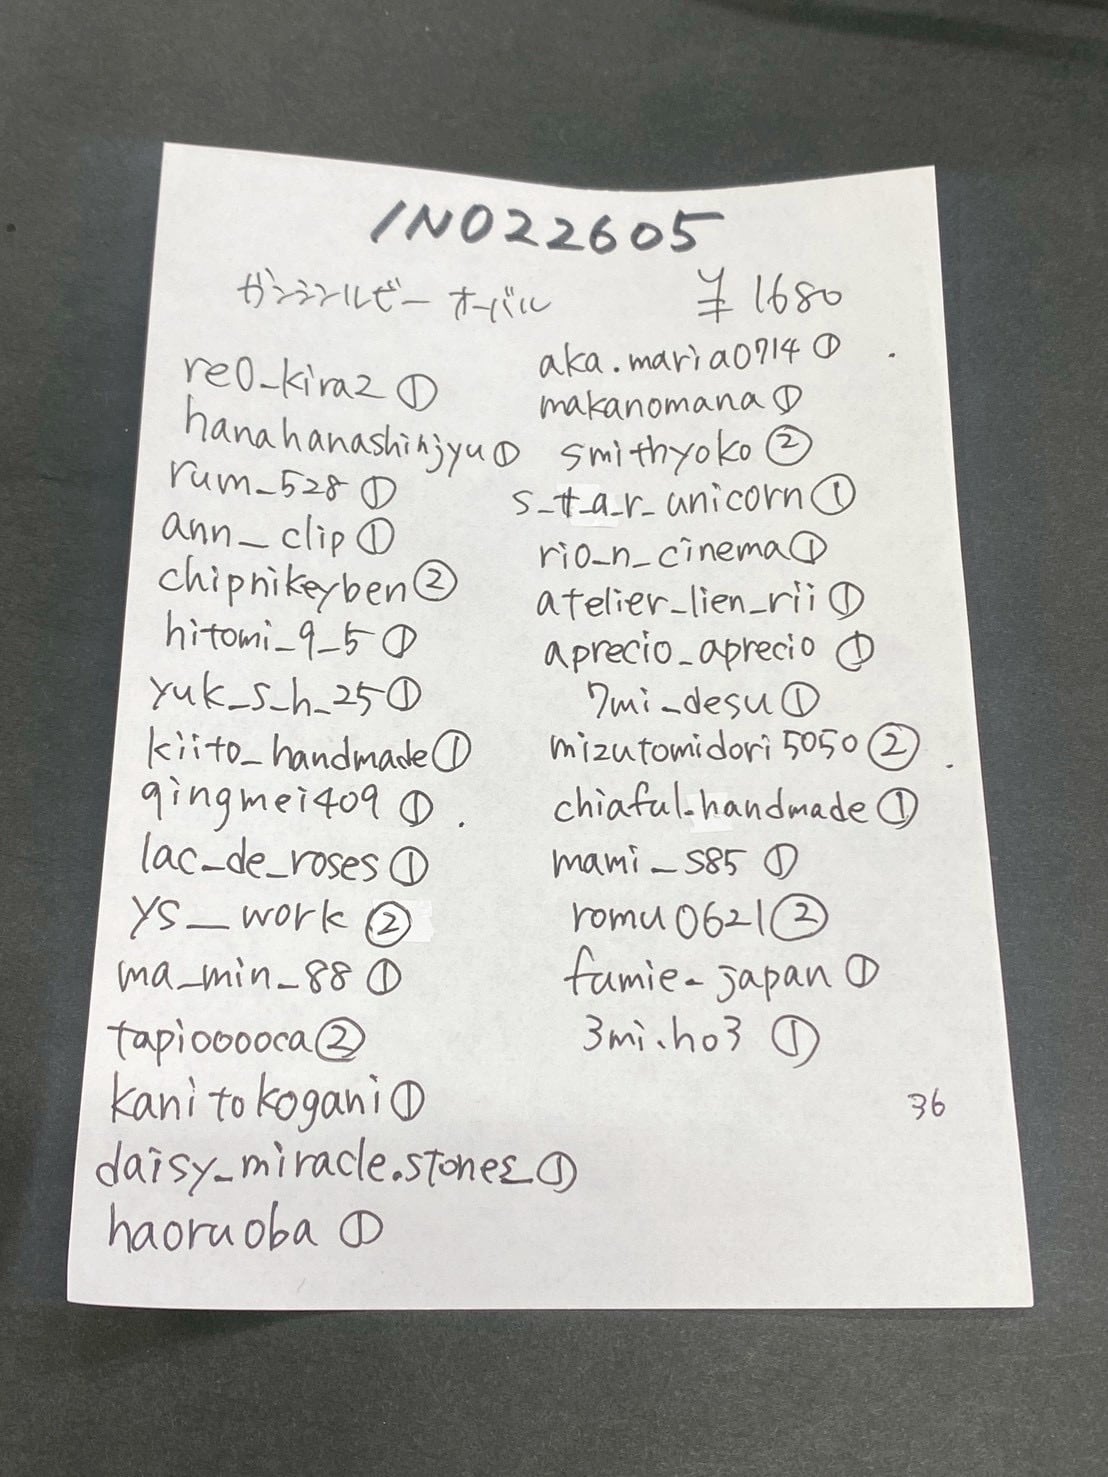 INO22605
ガンジンルビー オーバル ¥1680
re0_kira2 ①
hanahanashinjyu ①
rum_528 ①
ann_clip ①
chipnikeyben ②
hitomi_9_5 ①
yuk_s_h_25 ①
kiito_handmade ①
qingmei409 ①
lac_de_roses ①
ys__work ②
ma_min_88 ①
tapiooooca ②
kanitokogani ①
daisy_miracle.stones_ ①
haoruoba ①
aka.maria0714 ①
makanomana ①
smithyoko ②
s_t_a_r_unicorn ①
rio_n_cinema ①
atelier_lien_rii ①
aprecio_aprecio ①
7mi_desu ①
mizutomidori5050 ②
chiaful.handmade ①
mami_s85 ①
romu0621 ②
fumie_japan ①
3mi.ho3 ①
36